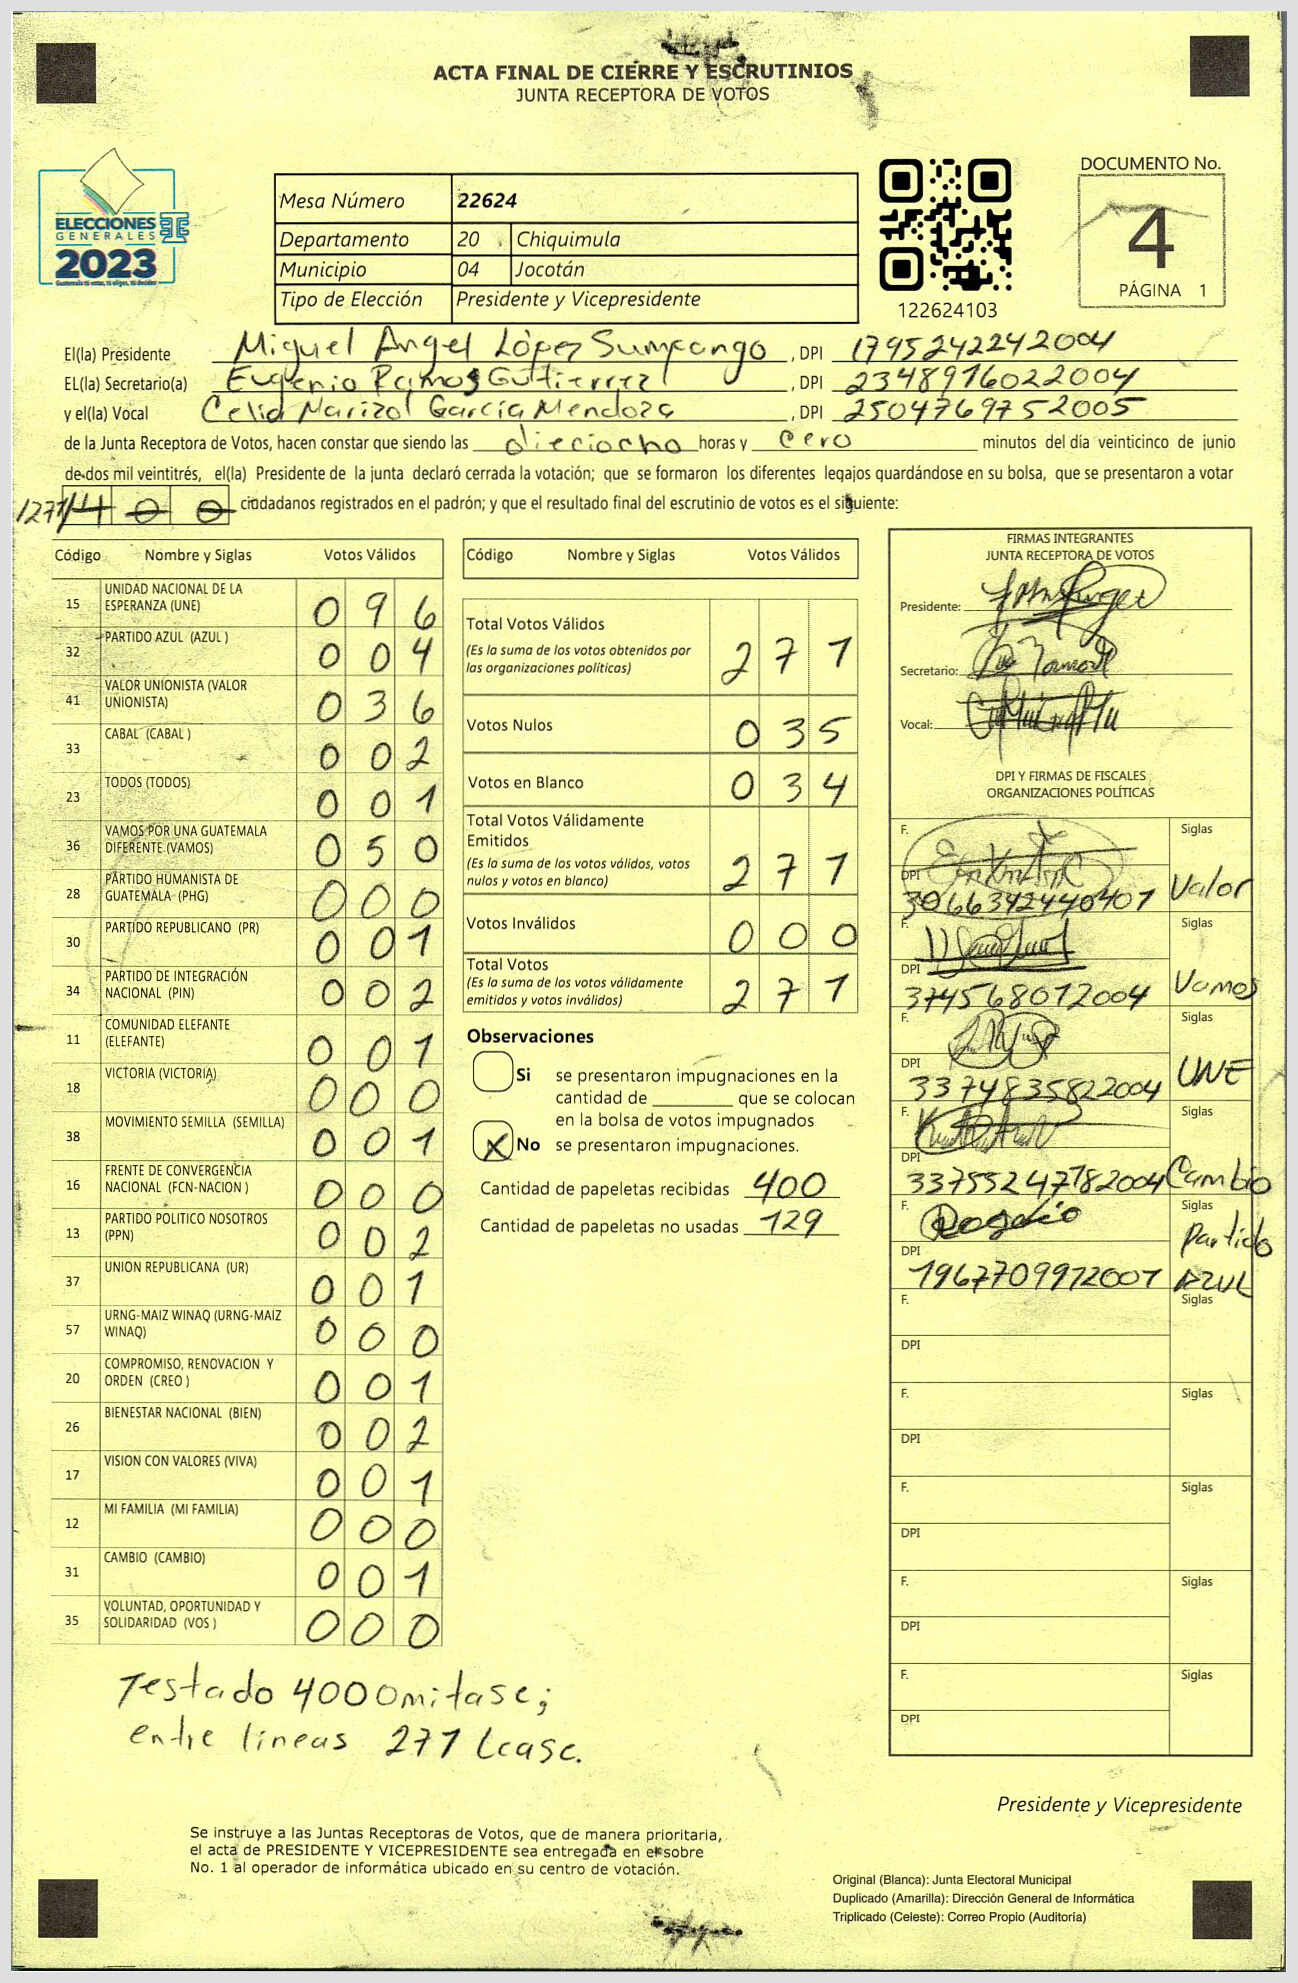 ACTA FINAL DE CIERRE Y ESCRUTINIOS
JUNTA RECEPTORA DE VOTOS
ELECCIONES
GENERALES
2023
Mesa Número 22624
Departamento 20 Chiquimula
Municipio 04 Jocotán
Tipo de Elección Presidente y Vicepresidente
122624103
DOCUMENTO No.
4
PÁGINA 1
El(la) Presidente Miguel Angel López Sumpango, DPI 1795242242004
EL(la) Secretario(a) Eugenio Ramos Gutierrez, DPI 2348916022004
y el(la) Vocal Celia Marizol García Mendoza, DPI 2504769752005
de la Junta Receptora de Votos, hacen constar que siendo las dieciocho horas y cero minutos del día veinticinco de junio
de dos mil veintitrés, el(la) Presidente de la junta declaró cerrada la votación; que se formaron los diferentes legajos quardándose en su bolsa, que se presentaron a votar
400 ciudadanos registrados en el padrón; y que el resultado final del escrutinio de votos es el siguiente:
Código Nombre y Siglas Votos Válidos
15 UNIDAD NACIONAL DE LA
ESPERANZA (UNE) 096
32 PARTIDO AZUL (AZUL ) 004
41 VALOR UNIONISTA (VALOR
UNIONISTA) 036
33 CABAL (CABAL ) 002
23 TODOS (TODOS) 001
36 VAMOS POR UNA GUATEMALA
DIFERENTE (VAMOS) 050
28 PARTIDO HUMANISTA DE
GUATEMALA (PHG) 000
30 PARTIDO REPUBLICANO (PR) 001
34 PARTIDO DE INTEGRACIÓN
NACIONAL (PIN) 002
11 COMUNIDAD ELEFANTE
(ELEFANTE) 001
18 VICTORIA (VICTORIA) 000
38 MOVIMIENTO SEMILLA (SEMILLA) 001
16 FRENTE DE CONVERGENCIA
NACIONAL (FCN-NACION ) 000
13 PARTIDO POLITICO NOSOTROS
(PPN) 002
37 UNION REPUBLICANA (UR) 001
57 URNG-MAIZ WINAQ (URNG-MAIZ
WINAQ) 000
20 COMPROMISO, RENOVACION Y
ORDEN (CREO ) 001
26 BIENESTAR NACIONAL (BIEN) 002
17 VISION CON VALORES (VIVA) 001
12 MI FAMILIA (MI FAMILIA) 000
31 CAMBIO (CAMBIO) 001
35 VOLUNTAD, OPORTUNIDAD Y
SOLIDARIDAD (VOS ) 000
Testado 400 Omitase;
entre líneas 271 Lease.
Código Nombre y Siglas Votos Válidos
Total Votos Válidos 271
(Es la suma de los votos obtenidos por
las organizaciones políticas)
Votos Nulos 035
Votos en Blanco 034
Total Votos Válidamente
Emitidos 271
(Es la suma de los votos válidos, votos
nulos y votos en blanco)
Votos Inválidos 000
Total Votos 271
(Es la suma de los votos válidamente
emitidos y votos inválidos)
Observaciones
Si se presentaron impugnaciones en la
cantidad de ________ que se colocan
en la bolsa de votos impugnados
X No se presentaron impugnaciones.
Cantidad de papeletas recibidas 400
Cantidad de papeletas no usadas 129
FIRMAS INTEGRANTES
JUNTA RECEPTORA DE VOTOS
Presidente:
Secretario:
Vocal:
DPI Y FIRMAS DE FISCALES
ORGANIZACIONES POLÍTICAS
F. Siglas
DPI 3066342440401 Valor
F. Siglas
DPI 374568072004 Vamos
F. Siglas
DPI 3374835822004 UNE
F. Siglas
DPI Cambio
F. Rogelio Siglas
DPI 1967709972001 Partido
AZUL
F. Siglas
DPI
F. Siglas
DPI
F. Siglas
DPI
F. Siglas
DPI
F. Siglas
DPI
Presidente y Vicepresidente
Se instruye a las Juntas Receptoras de Votos, que de manera prioritaria,
el acta de PRESIDENTE Y VICEPRESIDENTE sea entregada en el sobre
No. 1 al operador de informática ubicado en su centro de votación.
Original (Blanca): Junta Electoral Municipal
Duplicado (Amarilla): Dirección General de Informática
Triplicado (Celeste): Correo Propio (Auditoría)